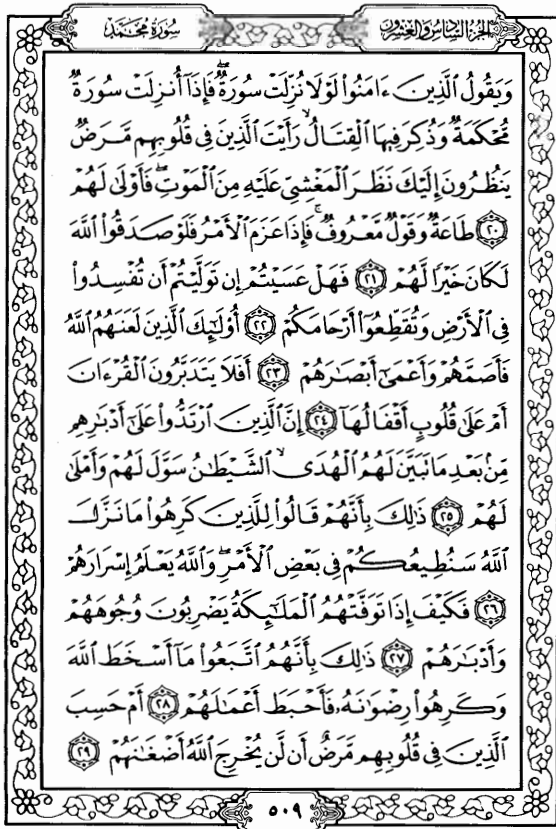 سُورَةُ مُحَمَّد
الجزء السادس والعشرون
وَيَقُولُ ٱلَّذِينَ ءَامَنُوا۟ لَوْلَا نُزِّلَتْ سُورَةٌ ۖ فَإِذَآ أُنزِلَتْ سُورَةٌ
مُّحْكَمَةٌ وَذُكِرَ فِيهَا ٱلْقِتَالُ ۙ رَأَيْتَ ٱلَّذِينَ فِى قُلُوبِهِم مَّرَضٌ
يَنظُرُونَ إِلَيْكَ نَظَرَ ٱلْمَغْشِىِّ عَلَيْهِ مِنَ ٱلْمَوْتِ ۖ فَأَوْلَىٰ لَهُمْ
٢٠ طَاعَةٌ وَقَوْلٌ مَّعْرُوفٌ ۚ فَإِذَا عَزَمَ ٱلْأَمْرُ فَلَوْ صَدَقُوا۟ ٱللَّهَ
لَكَانَ خَيْرًا لَّهُمْ ٢١ فَهَلْ عَسَيْتُمْ إِن تَوَلَّيْتُمْ أَن تُفْسِدُوا۟
فِى ٱلْأَرْضِ وَتُقَطِّعُوٓا۟ أَرْحَامَكُمْ ٢٢ أُو۟لَـٰٓئِكَ ٱلَّذِينَ لَعَنَهُمُ ٱللَّهُ
فَأَصَمَّهُمْ وَأَعْمَىٰٓ أَبْصَـٰرَهُمْ ٢٣ أَفَلَا يَتَدَبَّرُونَ ٱلْقُرْءَانَ
أَمْ عَلَىٰ قُلُوبٍ أَقْفَالُهَآ ٢٤ إِنَّ ٱلَّذِينَ ٱرْتَدُّوا۟ عَلَىٰٓ أَدْبَـٰرِهِم
مِّنۢ بَعْدِ مَا تَبَيَّنَ لَهُمُ ٱلْهُدَى ۙ ٱلشَّيْطَـٰنُ سَوَّلَ لَهُمْ وَأَمْلَىٰ
لَهُمْ ٢٥ ذَٰلِكَ بِأَنَّهُمْ قَالُوا۟ لِلَّذِينَ كَرِهُوا۟ مَا نَزَّلَ
ٱللَّهُ سَنُطِيعُكُمْ فِى بَعْضِ ٱلْأَمْرِ ۖ وَٱللَّهُ يَعْلَمُ إِسْرَارَهُمْ
٢٦ فَكَيْفَ إِذَا تَوَفَّتْهُمُ ٱلْمَلَـٰٓئِكَةُ يَضْرِبُونَ وُجُوهَهُمْ
وَأَدْبَـٰرَهُمْ ٢٧ ذَٰلِكَ بِأَنَّهُمُ ٱتَّبَعُوا۟ مَآ أَسْخَطَ ٱللَّهَ
وَكَرِهُوا۟ رِضْوَٰنَهُۥ فَأَحْبَطَ أَعْمَـٰلَهُمْ ٢٨ أَمْ حَسِبَ
ٱلَّذِينَ فِى قُلُوبِهِم مَّرَضٌ أَن لَّن يُخْرِجَ ٱللَّهُ أَضْغَـٰنَهُمْ ٢٩
٥٠٩